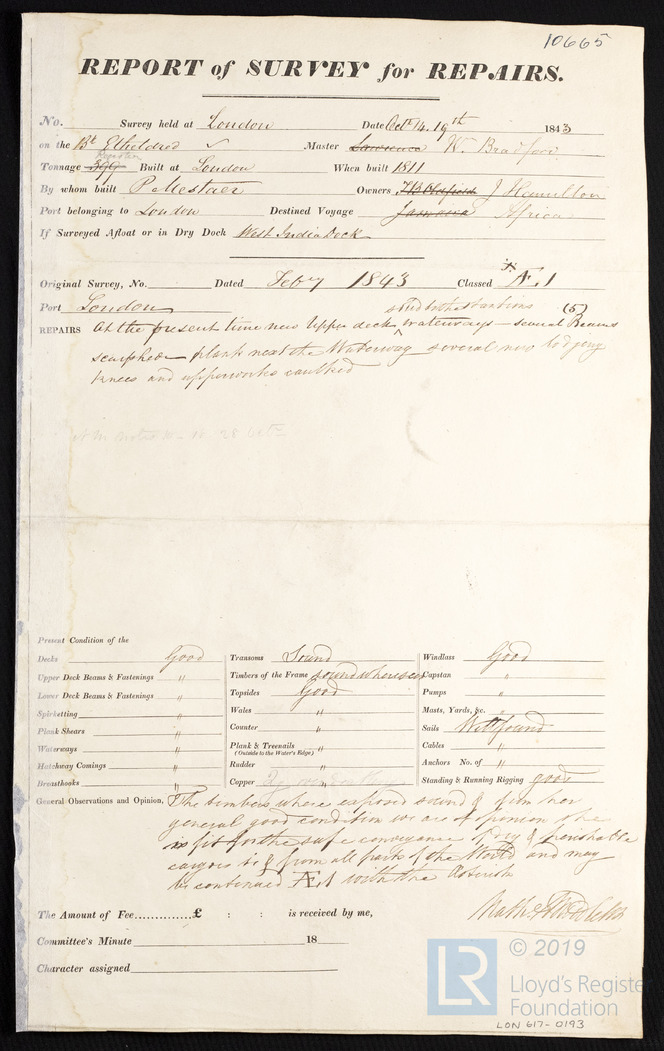 10665
REPORT of SURVEY for REPAIRS.
No. Survey held at London Date Oct. 14. 19th 1843
on the Bk Etheldred Master Lawrence W. Bradford
Tonnage 399 Built at London When built 1811
By whom built Owners J Hamilton
Port belonging to London Destined Voyage Jamaica Africa
If Surveyed Afloat or in Dry Dock West India Dock
Original Survey, No. Dated Feby 1843 Classed Æ 1
Port London
REPAIRS At the present time new Upper deck, Waterways — several Beams (5)
scarphed — plank next the Waterway several new lodging
knees and upperworks caulked
Present Condition of the
Decks Good
Upper Deck Beams & Fastenings "
Lower Deck Beams & Fastenings "
Spirketting "
Plank Shears "
Waterways "
Hatchway Comings "
Breasthooks "
Transoms Sound
Timbers of the Frame sound where seen
Topsides Good
Wales "
Counter "
Plank & Treenails "
(Outside to the Water's Edge)
Rudder "
Copper
Windlass Good
Capstan "
Pumps "
Masts, Yards, &c. "
Sails Well found
Cables "
Anchors No. of "
Standing & Running Rigging good
General Observations and Opinion, The timbers where exposed sound & from her
general good condition we are of opinion she
is fit for the safe conveyance of dry & perishable
cargoes to & from all parts of the World and may
be continued Æ 1 with the Asterisk
The Amount of Fee..............£ : : is received by me,
Committee's Minute 18
Character assigned
LR
© 2019
Lloyd's Register
Foundation
LON 617-0193